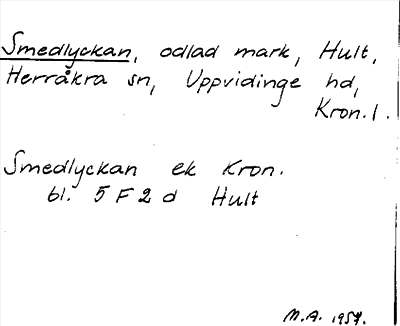 Smedlyckan, odlad mark, Hult,
Herråkra sn, Uppvidinge hd,
Kron. l.
Smedlyckan ek Kron.
bl. 5 F 2 d Hult
M.A. 1957.